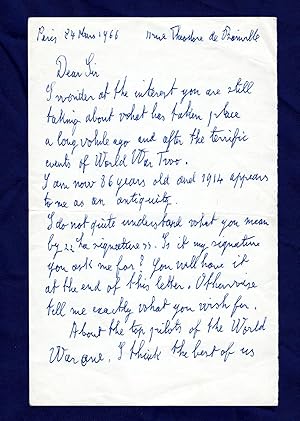 Paris 24 Mars 1966 11 rue Theodore de Banville
Dear Sir
I wonder at the interest you are still
taking about what has taken place
a long while ago and after the terrific
events of World War Two.
I am now 86 years old and 1914 appears
to me as an antiquity.
I do not quite understand what you mean
by << la signature >>. Is it my signature
you ask me for? You will have it
at the end of this letter. Otherwise
tell me exactly what you wish for.
About the top pilots of the World
War one. I think the best of us